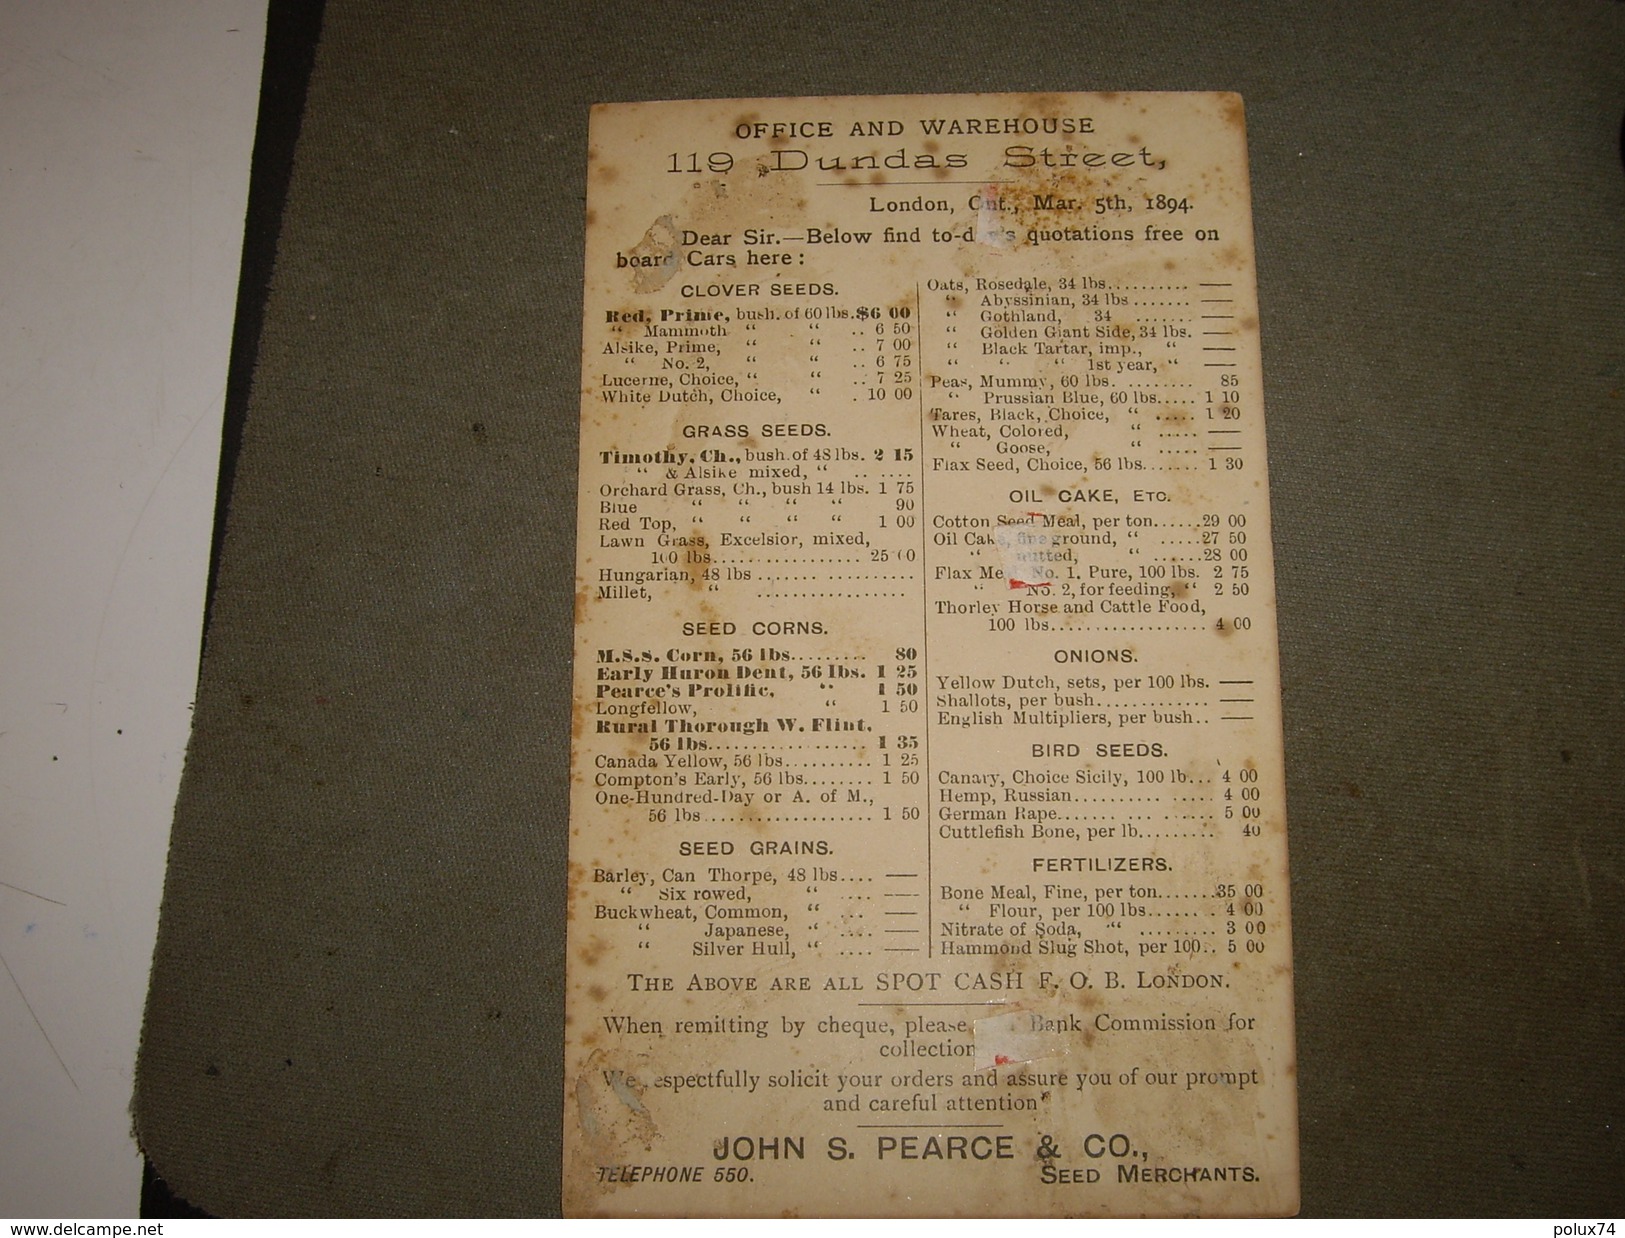 OFFICE AND WAREHOUSE
119 Dundas Street,
London, Ont., Mar. 5th, 1894.
Dear Sir.—Below find to-day's quotations free on
board Cars here :
CLOVER SEEDS.
Red, Prime, bush. of 60 lbs. $6 00
“ Mammoth “ “ .. 6 50
Alsike, Prime, “ “ .. 7 00
“ No. 2, “ “ .. 6 75
Lucerne, Choice, “ “ .. 7 25
White Dutch, Choice, “ . 10 00
GRASS SEEDS.
Timothy, Ch., bush. of 48 lbs. 2 15
“ & Alsike mixed, “ .. ....
Orchard Grass, Ch., bush 14 lbs. 1 75
Blue “ “ “ “ 90
Red Top, “ “ “ “ 1 00
Lawn Grass, Excelsior, mixed,
100 lbs.................. 25 00
Hungarian, 48 lbs ...................
Millet, “ ................
SEED CORNS.
M.S.S. Corn, 56 lbs......... 80
Early Huron Dent, 56 lbs. 1 25
Pearce's Prolific, “ 1 50
Longfellow, “ 1 50
Rural Thorough W. Flint,
56 lbs................... 1 35
Canada Yellow, 56 lbs.......... 1 25
Compton's Early, 56 lbs........ 1 50
One-Hundred-Day or A. of M.,
56 lbs................... 1 50
SEED GRAINS.
Barley, Can Thorpe, 48 lbs.... ——
“ Six rowed, “ .... ——
Buckwheat, Common, “ ... ——
“ Japanese, “ .... ——
“ Silver Hull, “ .... ——
Oats, Rosedale, 34 lbs.......... ——
“ Abyssinian, 34 lbs ....... ——
“ Gothland, 34 ....... ——
“ Golden Giant Side, 34 lbs. ——
“ Black Tartar, imp., “ ——
“ “ “ 1st year, “ ——
Peas, Mummy, 60 lbs. ........ 85
“ Prussian Blue, 60 lbs..... 1 10
Tares, Black, Choice, “ ..... 1 20
Wheat, Colored, “ ..... ——
“ Goose, “ ..... ——
Flax Seed, Choice, 56 lbs....... 1 30
OIL CAKE, ETC.
Cotton Seed Meal, per ton......29 00
Oil Cake, fine ground, “ .....27 50
“ nutted, “ ......28 00
Flax Meal No. 1. Pure, 100 lbs. 2 75
“ No. 2, for feeding, “ 2 50
Thorley Horse and Cattle Food,
100 lbs.................. 4 00
ONIONS.
Yellow Dutch, sets, per 100 lbs. ——
Shallots, per bush............. ——
English Multipliers, per bush.. ——
BIRD SEEDS.
Canary, Choice Sicily, 100 lb... 4 00
Hemp, Russian.......... ..... 4 00
German Rape....... ... ...... 5 00
Cuttlefish Bone, per lb......... 40
FERTILIZERS.
Bone Meal, Fine, per ton.......35 00
“ Flour, per 100 lbs....... . 4 00
Nitrate of Soda, “ ......... 3 00
Hammond Slug Shot, per 100.. 5 00
THE ABOVE ARE ALL SPOT CASH F. O. B. LONDON.
When remitting by cheque, please Bank Commission for
collection
We respectfully solicit your orders and assure you of our prompt
and careful attention
JOHN S. PEARCE & CO.,
TELEPHONE 550.
SEED MERCHANTS.
www.delcampe.net
polux74